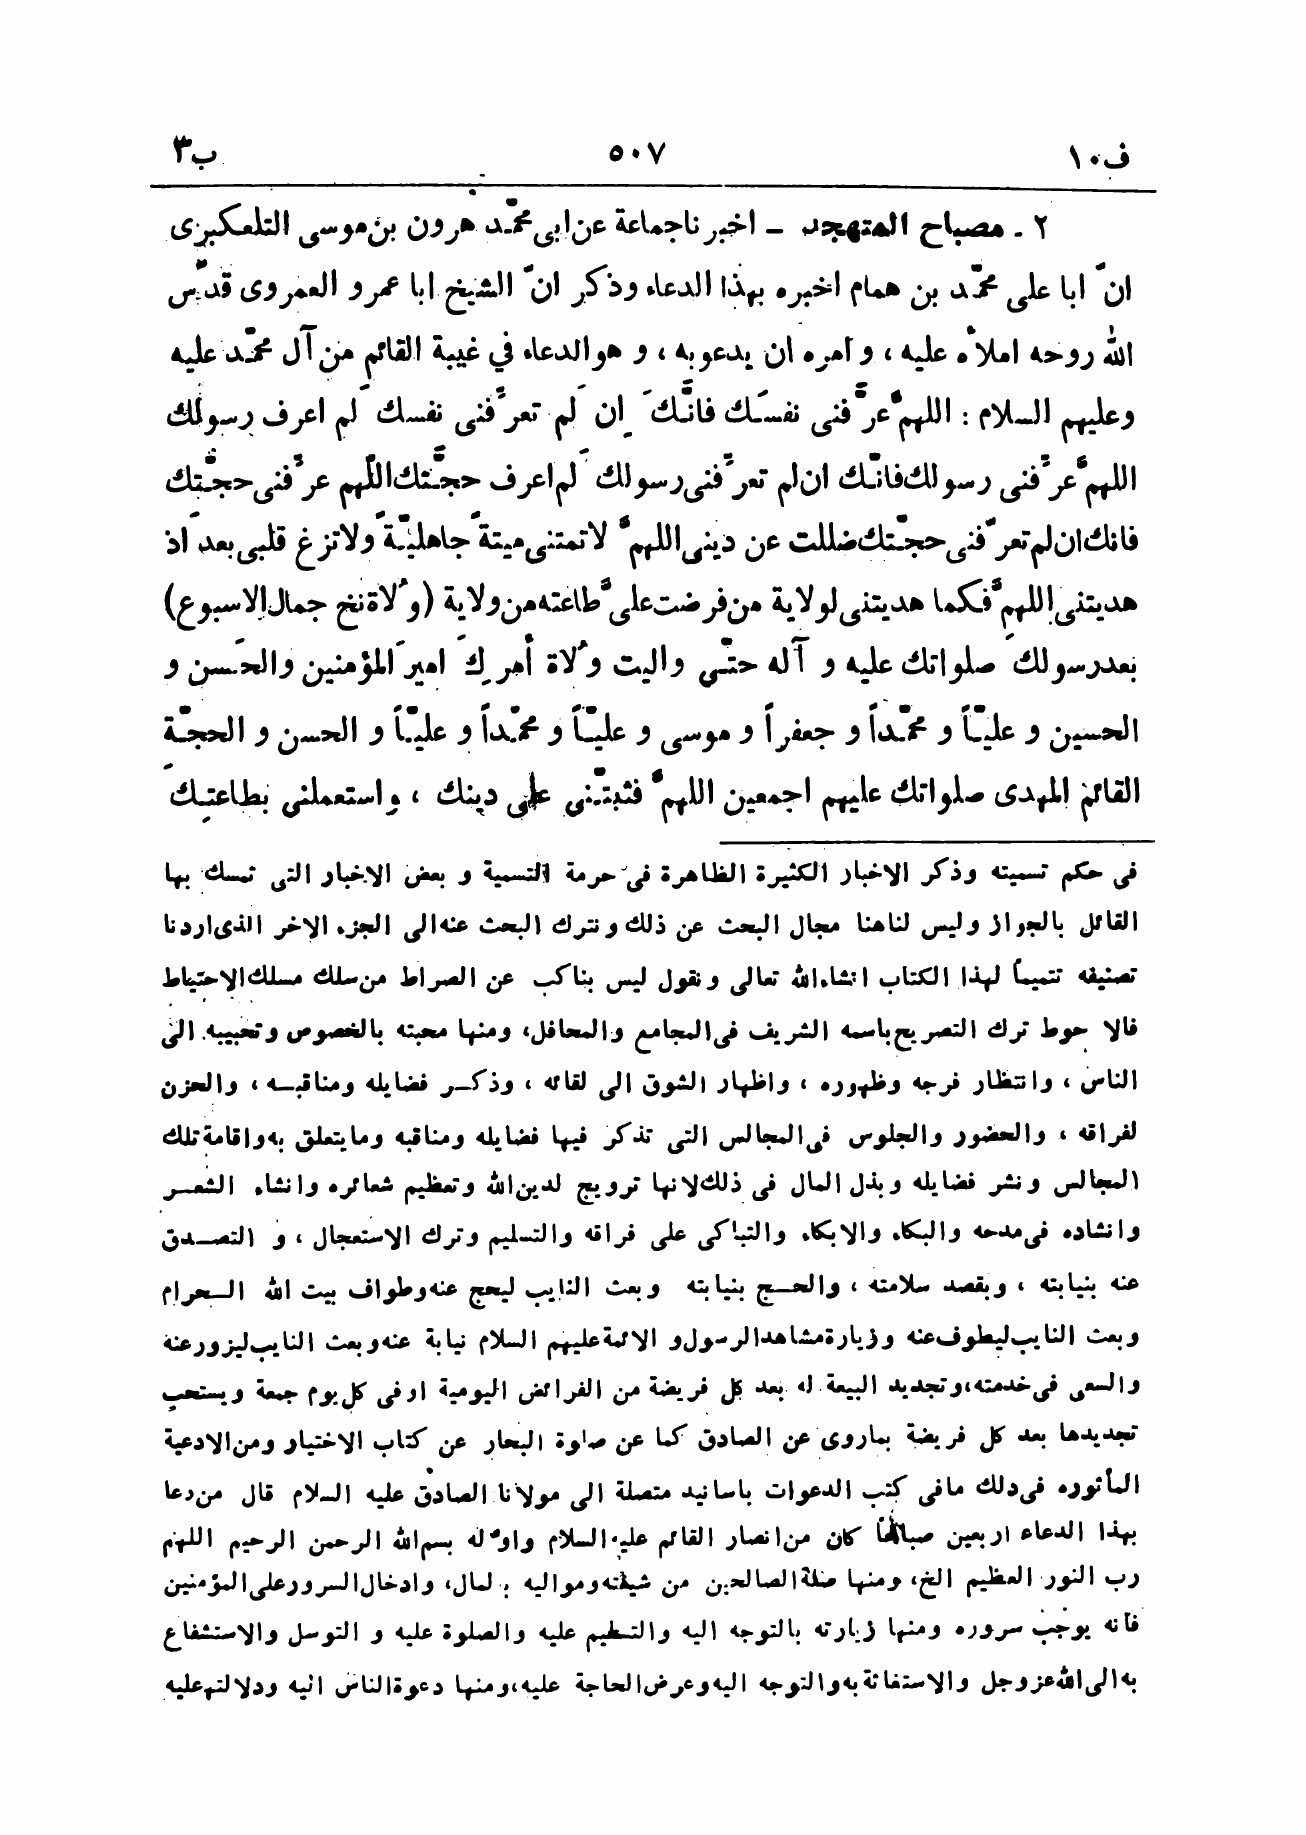 ف١٠ ٥٠٧ ب٣
٢ ـ مصباح المتهجد ـ اخبرنا جماعة عن ابى محمّد هرون بن موسى التلعكبرى
انّ ابا على محمّد بن همام اخبره بهذا الدعاء وذكر انّ الشيخ ابا عمرو العمروى قدّس
الله روحه املاْه عليه ، وامره ان يدعو به ، و هو الدعاء في غيبة القائم من آل محمّد عليه
وعليهم السلام : اللهمَّ عرِّفنى نفسَك فانَّكَ إن لَم تعرِّفنى نفسك لَم اعرف رسولك
اللهمَّ عرِّفنى رسولك فانّك ان لم تعرِّفنى رسولك لَم اعرف حجَّتك اللّهم عرِّفنى حجّتك
فانك ان لم تعرِّفنى حجّتك ضللت عن دينى اللهمَّ لا تمتنى ميتةً جاهليّةً ولا تزغ قلبى بعد اذ
هديتنى اللهمَّ فكما هديتنى لولاية من فرضت علىَّ طاعته من ولاية (وُلاة نخ جمال الاسبوع)
بعد رسولك صلواتك عليه و آله حتّى واليت وُلاة أمرِكَ اميرَ المؤمنين والحَسن و
الحسين و عليّاً و محمّداً و جعفراً و موسى و عليّاً و محمّداً و عليّاً و الحسن و الحجّة
القائم المهدى صلواتك عليهم اجمعين اللهمَّ فثبّتنى على دينك ، واستعملنى بطاعتِكَ
فى حكم تسميته وذكر الاخبار الكثيرة الظاهرة فى حرمة التسمية و بعض الاخبار التى تمسك بها
القائل بالجواز وليس لناهنا مجال البحث عن ذلك ونترك البحث عنه الى الجزء الاخر الذى اردنا
تصنيفه تتميماً لهذا الكتاب انشاءالله تعالى ونقول ليس بناكب عن الصراط من سلك مسلك الاحتياط
فالا حوط ترك التصريح باسمه الشريف فى المجامع والمحافل، ومنها محبته بالخصوص وتحبيبه الى
الناس ، وانتظار فرجه وظهوره ، واظهار الشوق الى لقائه ، وذكر فضايله ومناقبه ، والحزن
لفراقه ، والحضور والجلوس فى المجالس التى تذكر فيها فضايله ومناقبه وما يتعلق به واقامة تلك
المجالس ونشر فضايله وبذل المال فى ذلك لانها ترويج لدين الله وتعظيم شعائره وانشاء الشعر
وانشاده فى مدحه والبكاء والابكاء والتباكى على فراقه والتسليم وترك الاستعجال ، و التصدق
عنه بنيابته ، وبقصد سلامته ، والحج بنيابته وبعث النايب ليحج عنه وطواف بيت الله الحرام
وبعث النايب ليطوف عنه وزيارة مشاهد الرسول و الائمة عليهم السلام نيابة عنه وبعث النايب ليزور عنه
والسعى فى خدمته، وتجديد البيعة له بعد كل فريضة من الفرائض اليومية اوفى كل يوم جمعة ويستحب
تجديدها بعد كل فريضة بماروى عن الصادق كما عن صلوة البحار عن كتاب الاختيار ومن الادعية
المأثوره فى ذلك مافى كتب الدعوات باسانيد متصلة الى مولانا الصادق عليه السلام قال من دعا
بهذا الدعاء اربعين صباحاً كان من انصار القائم عليه السلام واوّله بسم الله الرحمن الرحيم اللهم
رب النور العظيم الخ، ومنها صلة الصالحين من شيعته ومواليه بالمال، وادخال السرور على المؤمنين
فانه يوجب سروره ومنها زيارته بالتوجه اليه والتسليم عليه والصلوة عليه و التوسل والاستشفاع
به الى الله عز وجل والاستغاثة به والتوجه اليه وعرض الحاجة عليه، ومنها دعوة الناس اليه ودلالتهم عليه